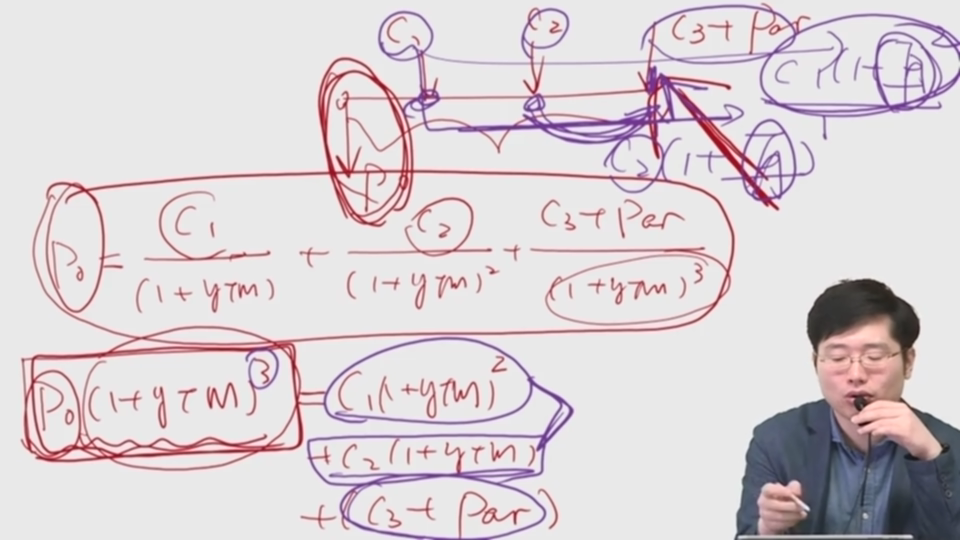 C1 C2 C3 + Par
C1(1+
C2(1+
P0
P0 = C1/(1+YTM) + C2/(1+YTM)² + (C3+Par)/(1+YTM)³
P0(1+YTM)³ = C1(1+YTM)²
+C2(1+YTM)
+(C3+Par)